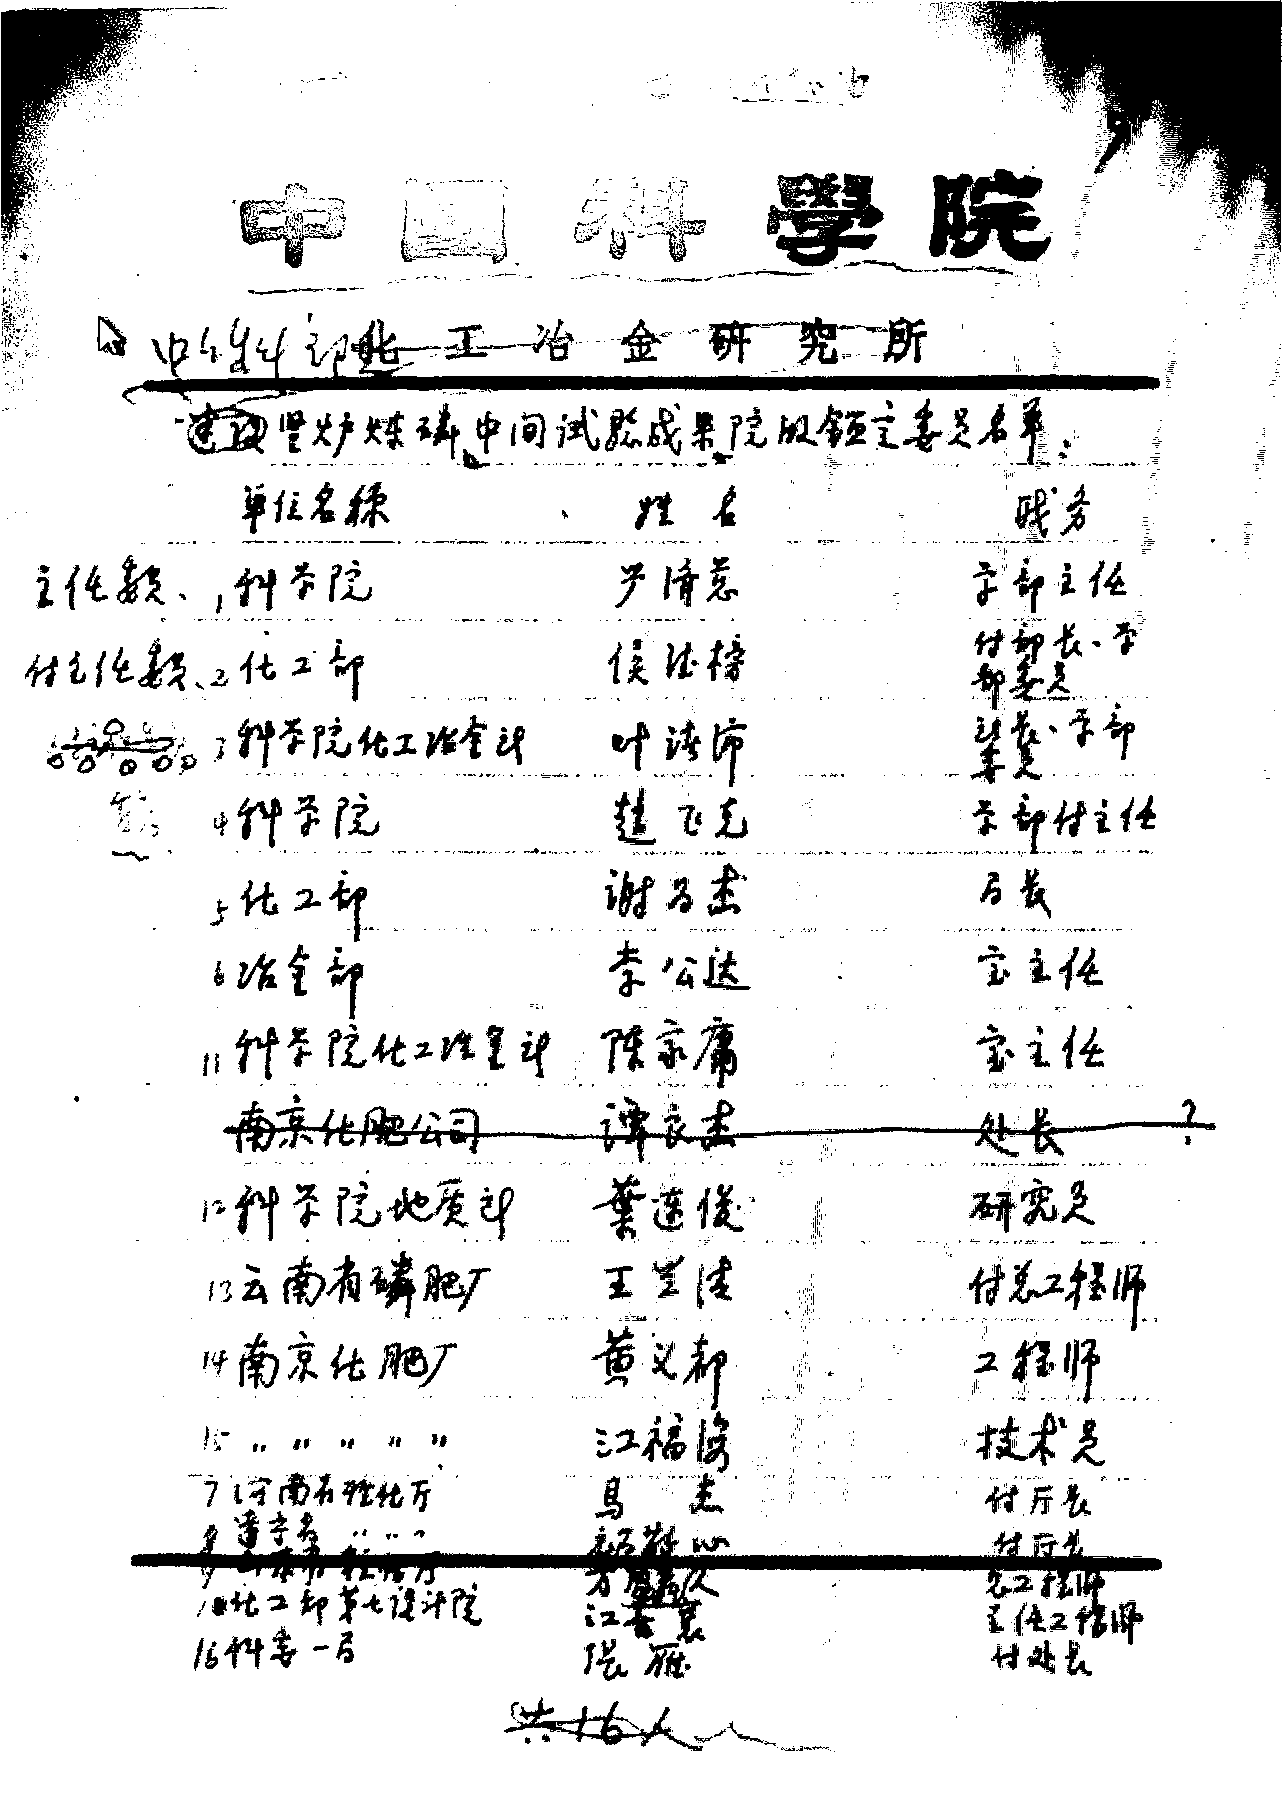 中國科學院
化工冶金研究所
竖炉炼磷中间试验成果院级鉴定委员名单:
单位名称 姓名 职务
主任委员、1 科学院 严济慈 学部主任
付主任委员、2 化工部 侯德榜 付部长、学部委员
3 科学院化工冶金所 叶渚沛 所长、学部委员
4 科学院 赵飞克 学部付主任
5 化工部 谢为杰 局长
6 冶金部 李公达 室主任
11 科学院化工冶金所 陈家庸 室主任
南京化肥公司 谭良杰 处长 ?
12 科学院地质所 葉连俊 研究员
13 云南省磷肥厂 王兰 付总工程师
14 南京化肥厂 黄义都 工程师
15 〃 〃 〃 〃 〃 江福海 技术员
7 河南省轻化厅 马杰 付厅长
8 〃 〃 〃 付厅长
9 总工程师
10 化工部第七设计院 江 主任工程师
16 科委一局 张雁 付处长
共16人